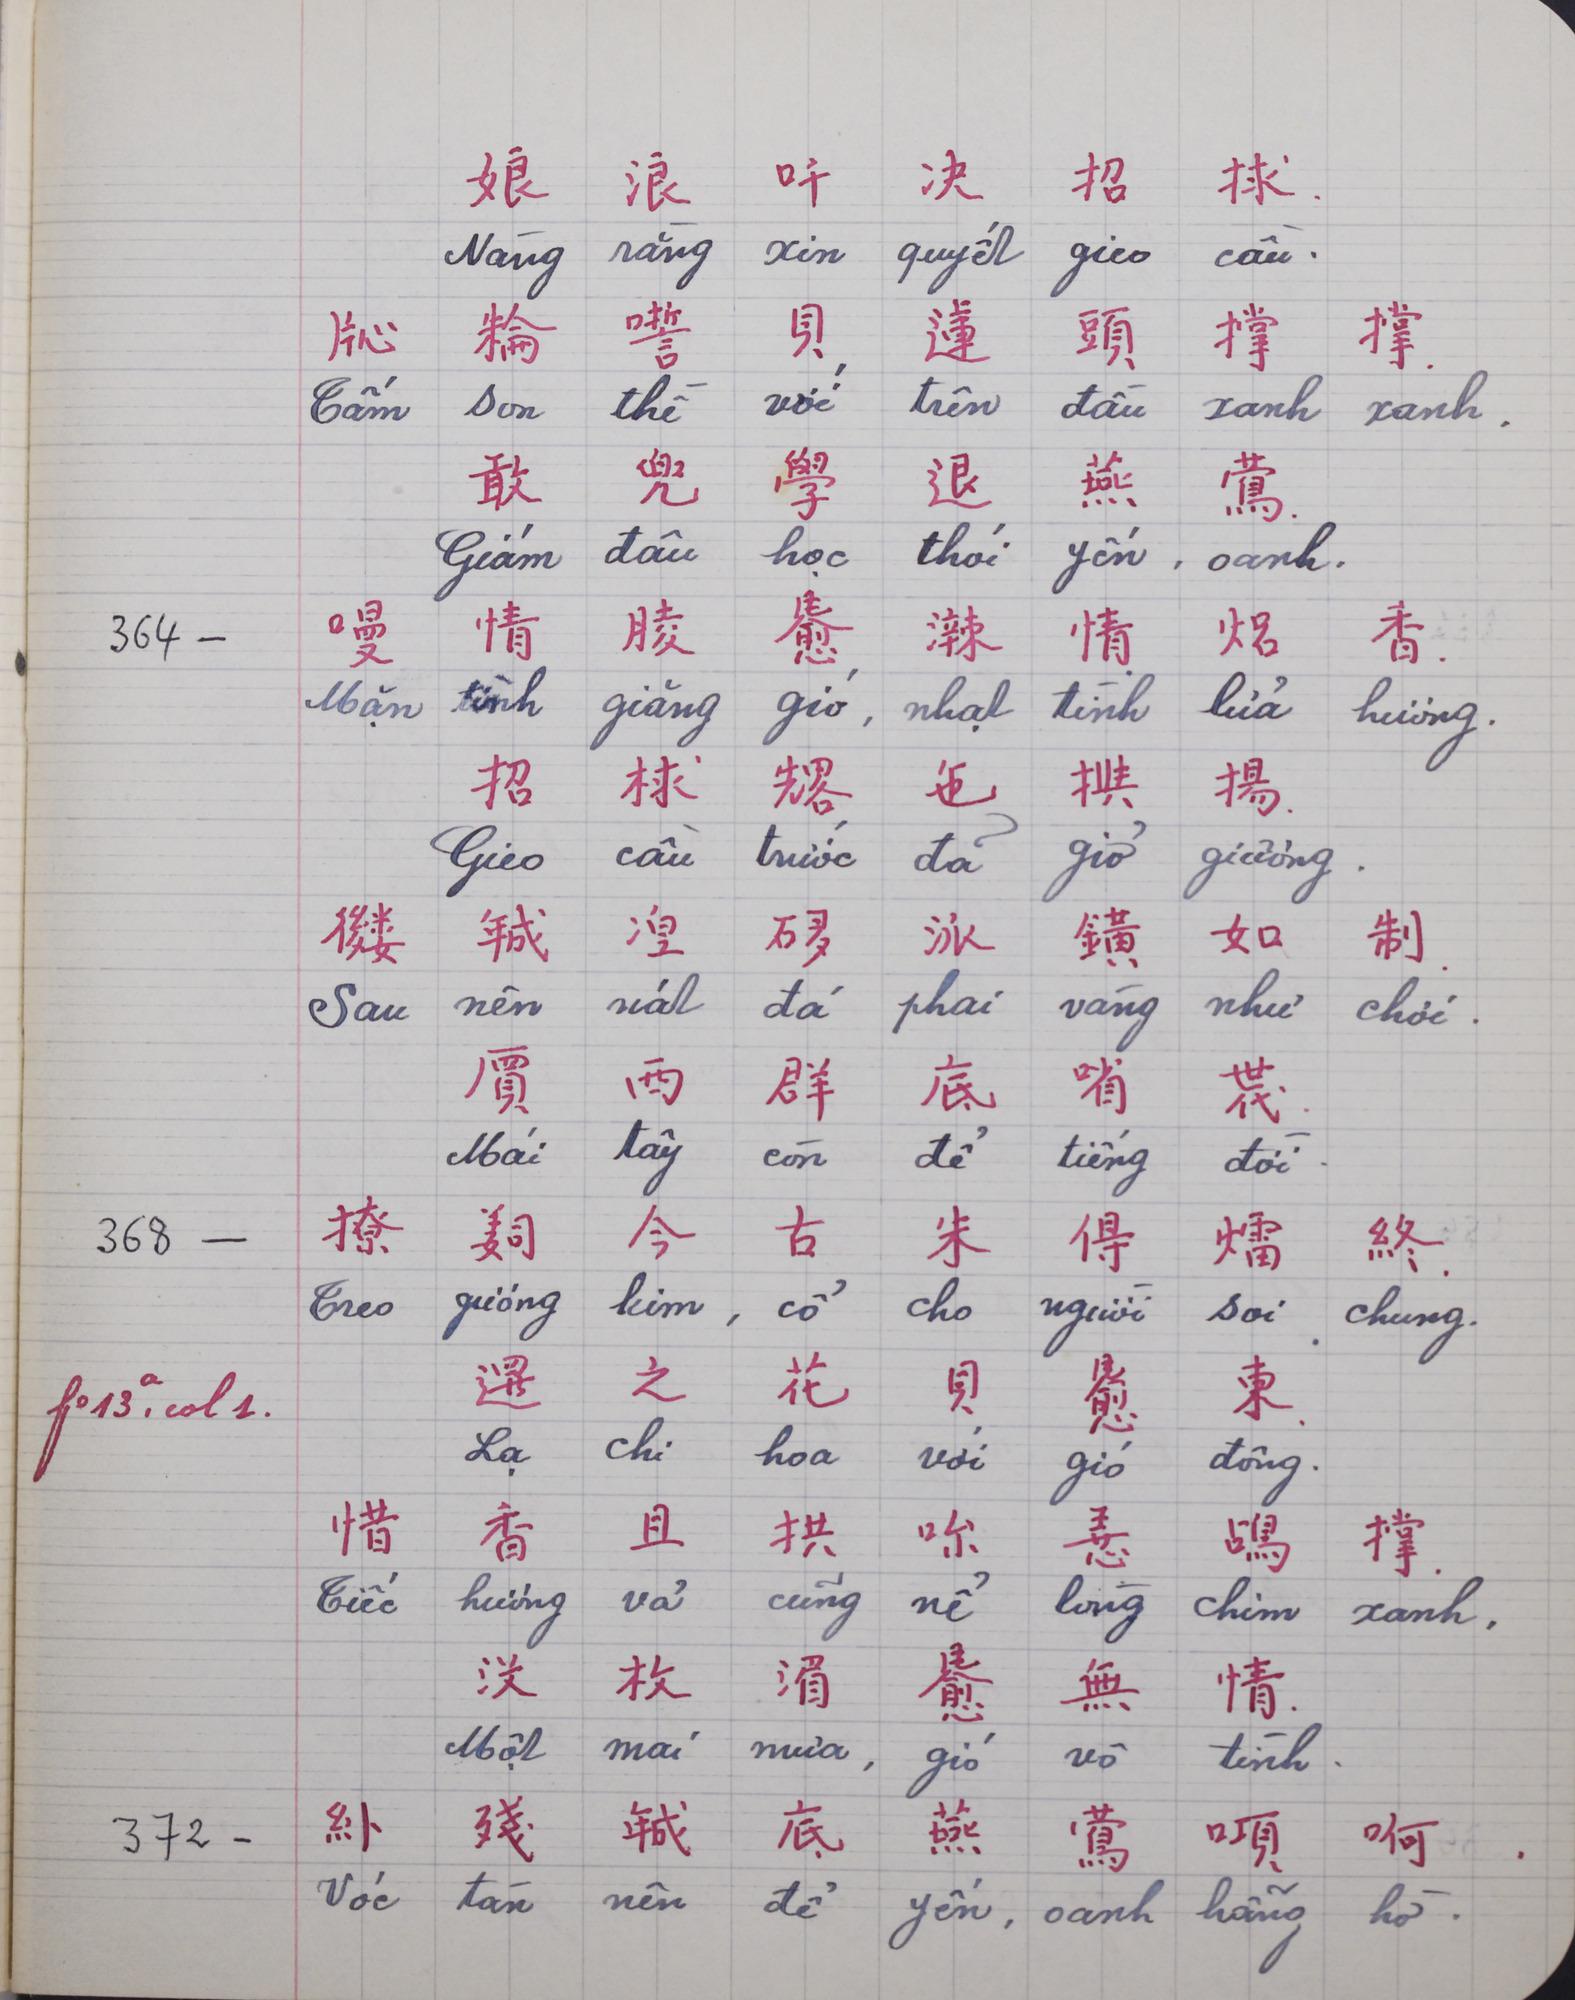 娘 浪 吀 决 招 捄.
Nàng rằng xin quyết gieo cầu.
𬌓 𥽌 𠽖 貝 蓮 頭 撑 撑.
Tấm son thề với trên đầu xanh xanh.
敢 兜 學 退 燕 鶯.
Giám đâu học thói yến, oanh.
364 – 嘪 情 𦝄 𩙍 溂 情 焒 香.
Mặn tình giăng gió, nhạt tình lửa hương.
招 捄 𠓀 㐌 㨋 揚.
Gieo cầu trước đã giở giường.
𢖖 𢧚 湟 𥒥 派 鐄 如 制.
Sau nên nát đá phai vàng như chơi.
㕓 西 群 底 哨 𠁀.
Mái tây còn để tiếng đời.
368 — 撩 𦎛 今 古 朱 𠊛 㷋 終.
Treo gương kim, cổ cho người soi chung.
fo 13a. col 1. 邏 之 花 貝 𩙍 東.
Lạ chi hoa với gió đông.
惜 香 且 拱 𠰃 𢚸 鴣 撑.
Tiếc hương vả cũng nể lòng chim xanh.
没 枚 湄 𩙍 無 情.
Một mai mưa, gió vô tình.
372 – 䊹 残 𢧚 底 燕 鶯 唝 㗿.
Vóc tàn nên để yến, oanh hẫng hờ.